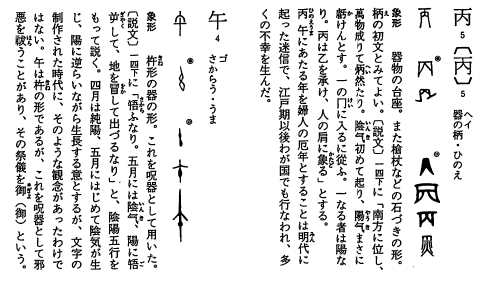 丙 5 〔丙〕 5 ヘイ 器の柄・ひのえ
象形 器物の台座。また槍杖などの石づきの形。
柄の初文とみてよい。〔説文〕一四下に「南方に位し、
萬物成りて炳然たり。陰气初めて起り、陽气まさに
虧けんとす。一の冂に入るに從ふ。一なる者は陽な
り。丙は乙を承け、人の肩に象る」とする。
丙午にあたる年を婦人の厄年とすることは明代に
起った迷信で、江戸期以後わが国でも行なわれ、多
くの不幸を生んだ。
午 4 ゴ さからう・うま
象形 杵形の器の形。これを呪器として用いた。
〔説文〕一四下に「啎ふなり。五月には陰气、陽に啎
逆して、地を冒して出づるなり」と、陰陽五行を
もって説く。四月は純陽、五月にはじめて陰気が生
じ、陽に逆らいながら生長する意とするが、文字の
制作された時代に、そのような観念があったわけで
はない。午は杵の形であるが、これを呪器として邪
悪を祓うことがあり、その祭儀を御(禦)という。